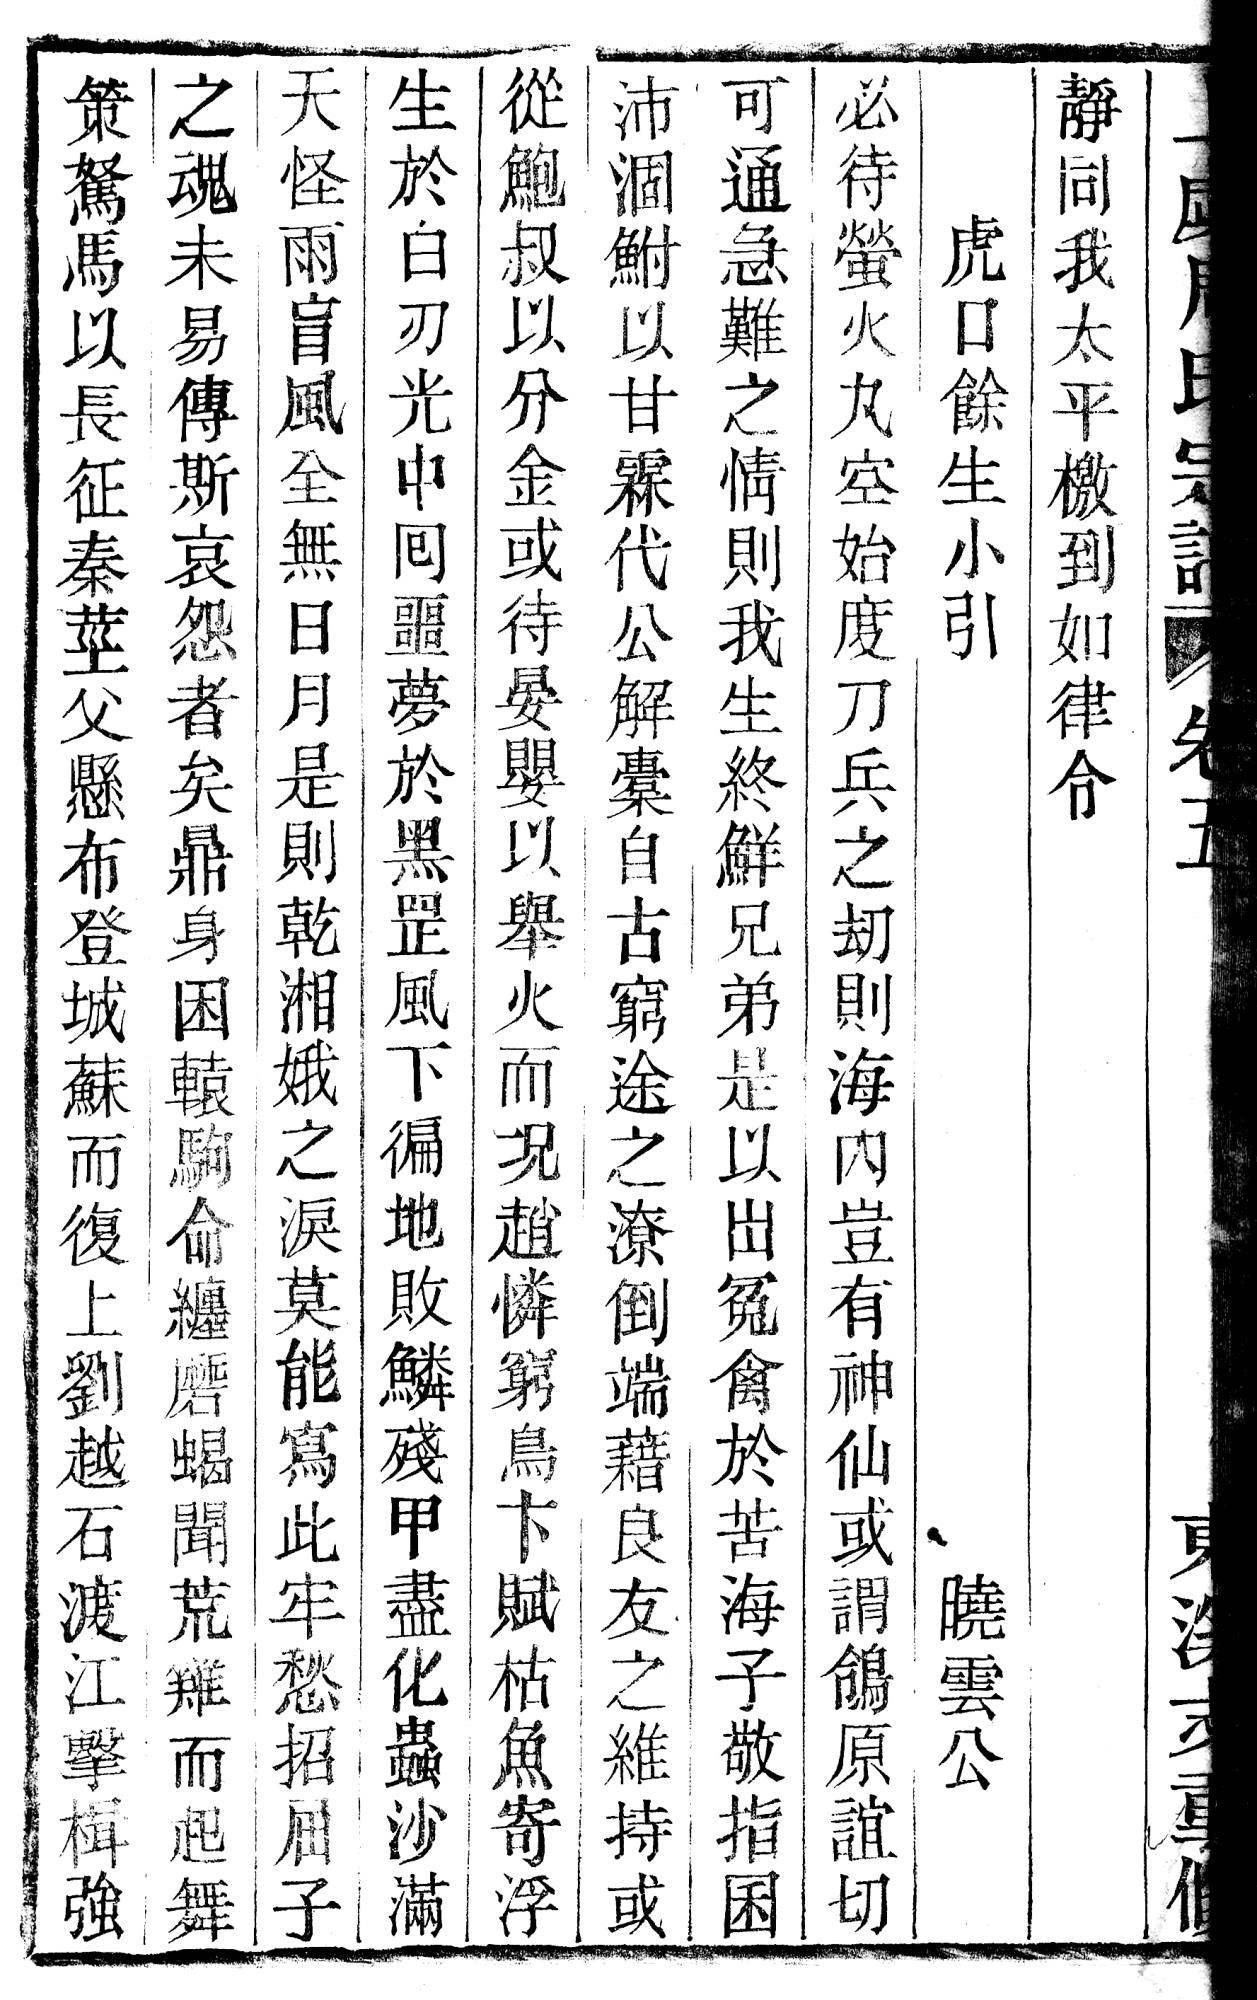 氏宗譜 卷五
靜同我太平檄到如律令
虎口餘生小引
曉雲公
必待螢火丸空始度刀兵之劫則海內豈有神仙或謂鴒原誼切
可通急難之情則我生終鮮兄弟是以出冤禽於苦海子敬指囷
沛涸鮒以甘霖代公解橐自古窮途之潦倒端藉良友之維持或
從鮑叔以分金或待晏嬰以舉火而況趙憐窮鳥卞賦枯魚寄浮
生於白刃光中回噩夢於黑罡風下徧地敗鱗殘甲盡化蟲沙滿
天怪雨盲風全無日月是則乾湘娥之淚莫能寫此牢愁招屈子
之魂未易傳斯哀怨者矣鼎身困轅駒命纏磨蝎聞荒雞而起舞
策駑馬以長征秦莖父懸布登城蘇而復上劉越石渡江擊楫強